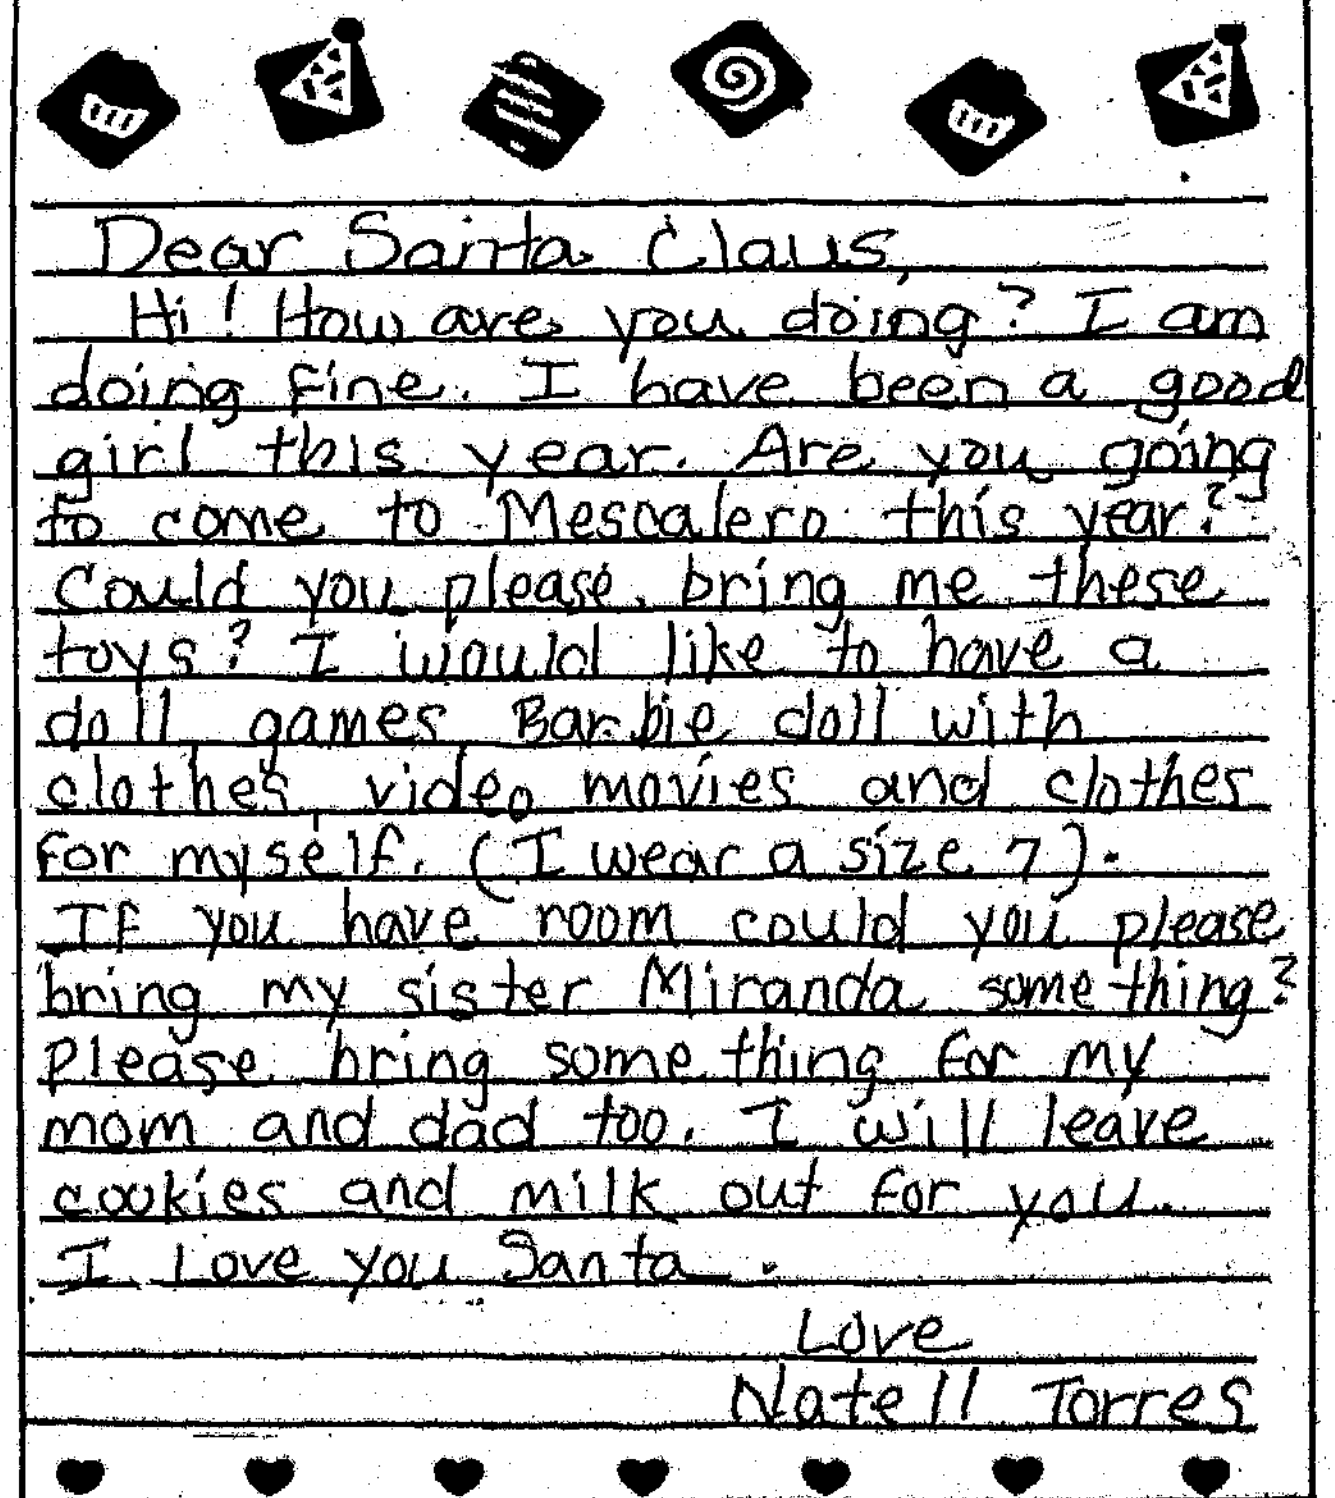 Dear Santa Claus,
Hi! How are you doing? I am
doing fine. I have been a good
girl this year. Are you going
to come to Mescalero this year?
Could you please bring me these
toys? I would like to have a
doll games Barbie doll with
clothes video movies and clothes
for myself. (I wear a size 7).
If you have room could you please
bring my sister Miranda something?
Please bring something for my
mom and dad too. I will leave
cookies and milk out for you.
I love you Santa.
Love
Natell Torres